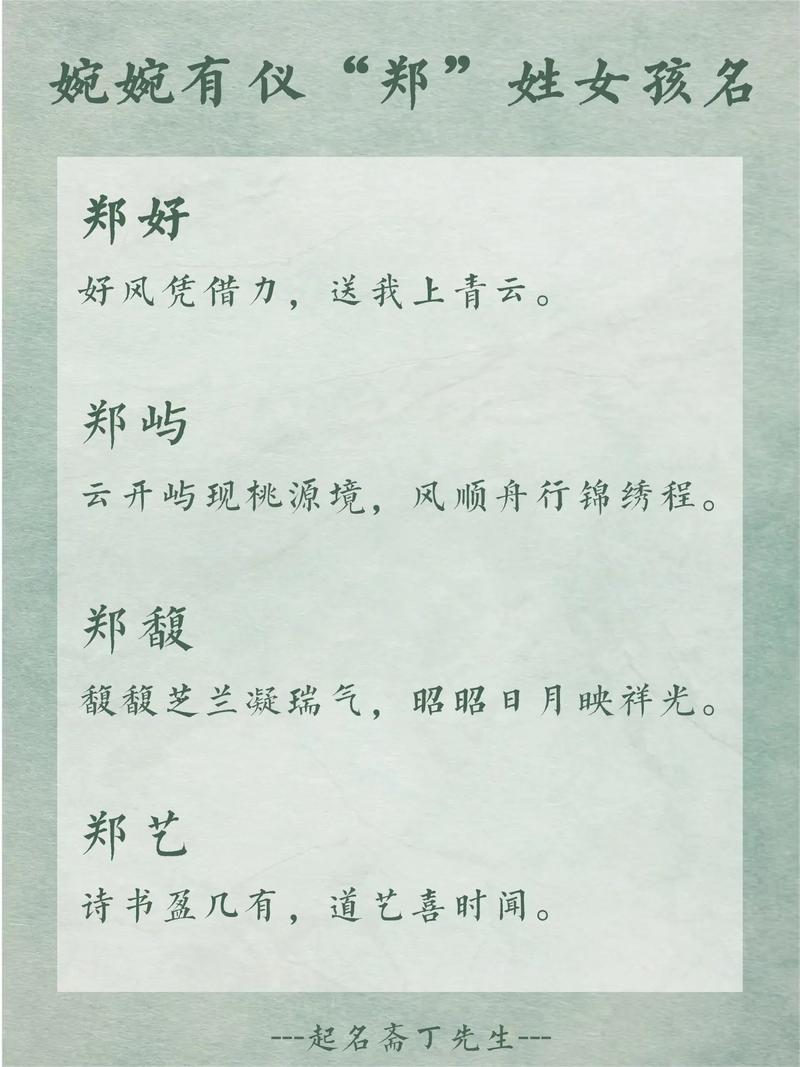 婉婉有仪“郑”姓女孩名
郑好
好风凭借力，送我上青云。
郑屿
云开屿现桃源境，风顺舟行锦绣程。
郑馥
馥馥芝兰凝瑞气，昭昭日月映祥光。
郑艺
诗书盈几有，道艺喜时闻。
---起名斋丁先生---